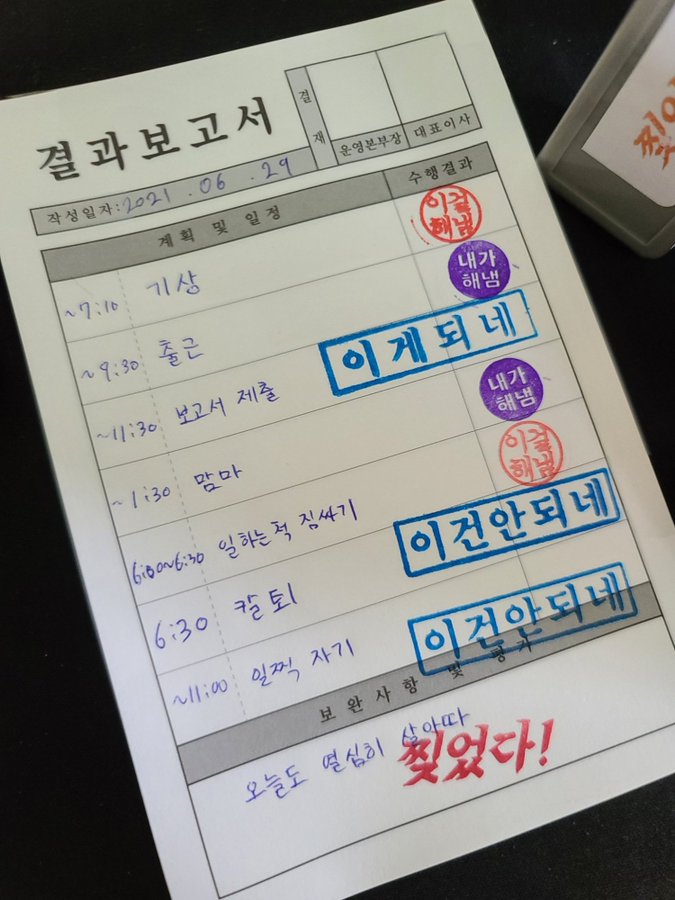 결재
운영본부장 대표이사
결과보고서
작성일자: 2021 . 06 . 29
계획 및 일정 수행결과
~7:10 기상 이걸해냄
~9:30 출근 내가해냄
~11:30 보고서 제출 이게되네
~1:30 맘마 내가해냄
6:00~6:30 일하는척 짐싸기 이걸해냄
6:30 칼퇴 이건안되네
~11:00 일찍 자기 이건안되네
보완사항 및 평가
오늘도 열심히 살아따
찢었다!